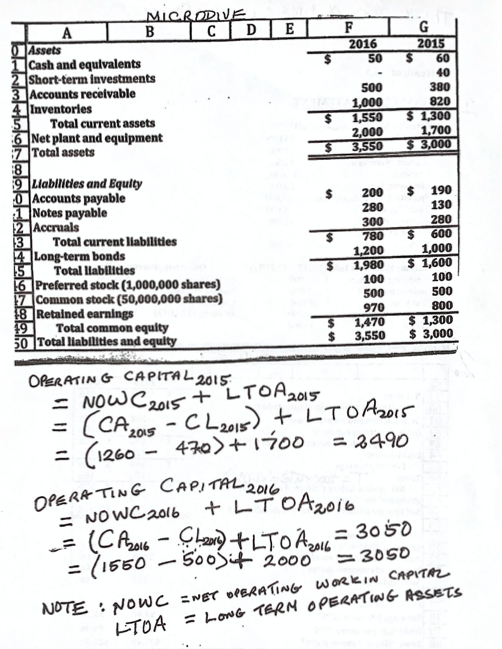 MICRODIVE
A B C D E F G
2016 2015
0 Assets
1 Cash and equivalents $ 50 $ 60
2 Short-term investments - 40
3 Accounts receivable 500 380
4 Inventories 1,000 820
5 Total current assets $ 1,550 $ 1,300
6 Net plant and equipment 2,000 1,700
7 Total assets $ 3,550 $ 3,000
8
9 Liabilities and Equity
0 Accounts payable $ 200 $ 190
1 Notes payable 280 130
2 Accruals 300 280
3 Total current liabilities $ 780 $ 600
4 Long-term bonds 1,200 1,000
5 Total liabilities $ 1,980 $ 1,600
16 Preferred stock (1,000,000 shares) 100 100
17 Common stock (50,000,000 shares) 500 500
18 Retained earnings 970 800
19 Total common equity $ 1,470 $ 1,300
50 Total liabilities and equity $ 3,550 $ 3,000
OPERATING CAPITAL 2015
= NOWC2015 + LTOA2015
= (CA2015 - CL2015) + LTOA2015
= (1260 - 470) + 1700 = 2490
OPERATING CAPITAL 2016
= NOWC2016 + LTOA2016
= (CA2016 - CL2016) + LTOA2016 = 3050
= (1550 - 500) + 2000 = 3050
NOTE : NOWC = NET OPERATING WORKIN CAPITAL
LTOA = LONG TERM OPERATING ASSETS